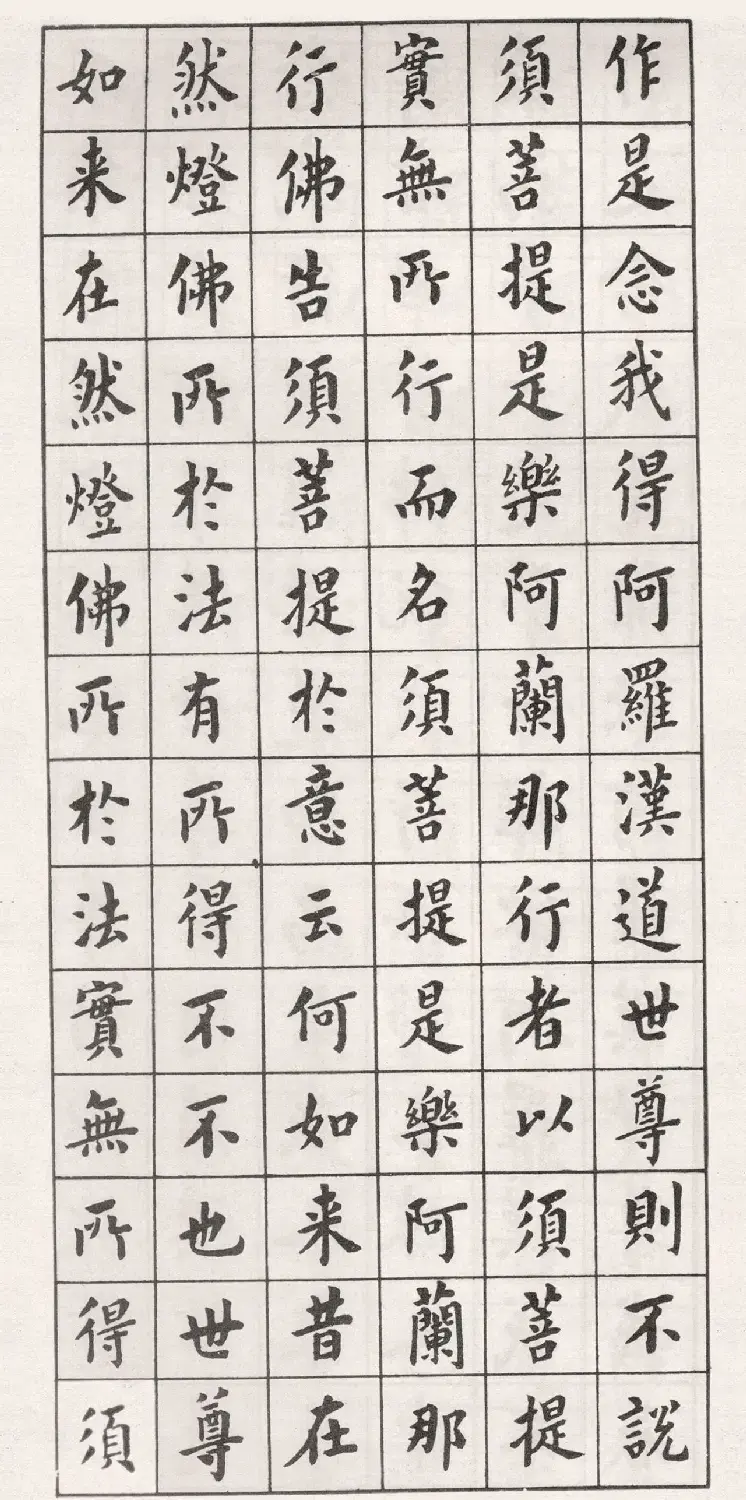 作是念我得阿羅漢道世尊則不說
須菩提是樂阿蘭那行者以須菩提
實無所行而名須菩提是樂阿蘭那
行佛告須菩提於意云何如来昔在
然燈佛所於法有所得不不也世尊
如来在然燈佛所於法實無所得須